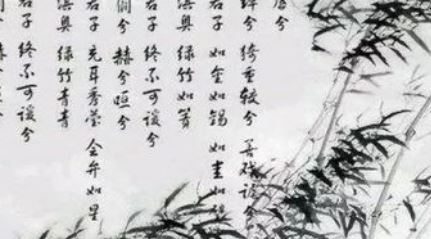 虐兮
绰兮 猗重较兮 善戏谑兮
君子 如金如锡 如圭如
淇奥 绿竹如箦
君子 终不可谖兮
僩兮 赫兮咺兮
君子 充耳琇莹 会弁如星
淇奥 绿竹青青
君子 终不可谖兮
赫兮咺兮